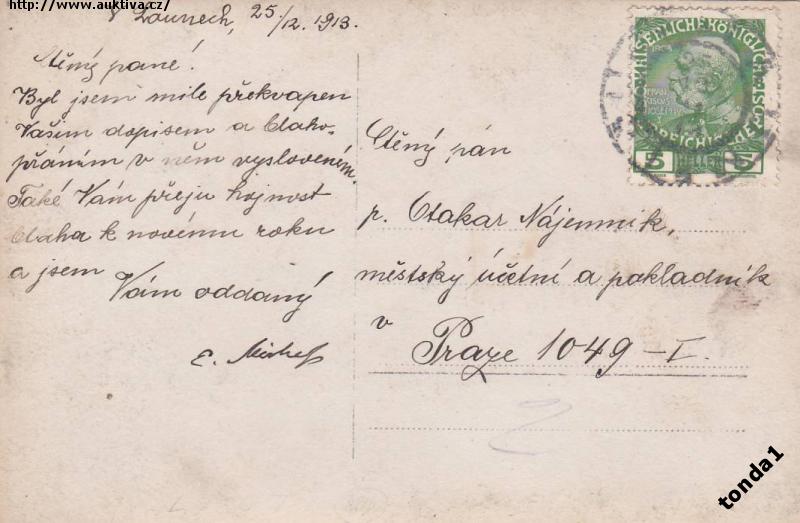 http://www.auktiva.cz/
V Lounech, 25/12. 1913.
Ctěný pane!
Byl jsem mile překvapen
Vašim dopisem a blaho-
přáním v něm vysloveném.
Také Vám přeju hojnost
blaha k novému roku
a jsem
Vám oddaný
E.
Ctěný pán
p. Otakar Nájemník,
městský účetní a pokladník
v
Praze 1049-I.
KAISERLICHE KÖNIGLICHE
5 HELLER 5
tonda1